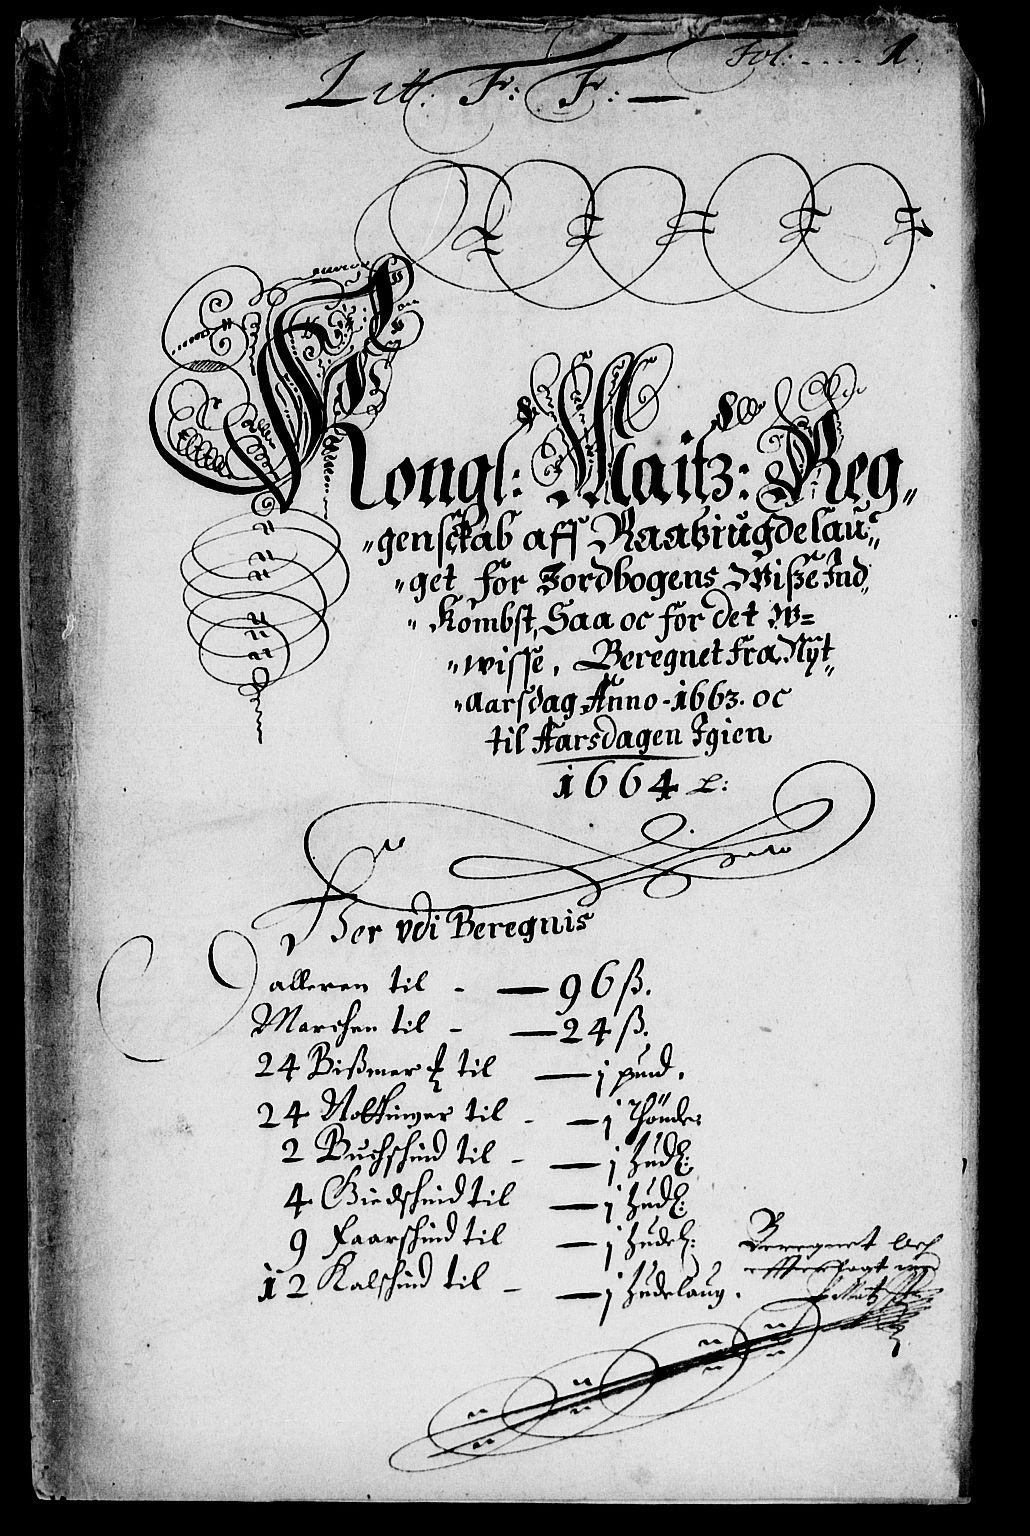 Litt: F: F: Fol: .... 1.
Kongl: Maitz: Reg„
„genschab aff Raabÿugdelau„
„get for Jordbogens Wisze Ind„
„Kombst, Saa oc for det W=
„wisse, Beregnet fra Nÿt„
„aarsdag Anno 1663. oc
til Aarsdagen Igien
1664
Her vdi Beregnis
Dalleren til - — 96 ß.
Marchen til - — 24 ß.
24 Bißmer ℔ til — j pund.
24 til - — j Thønde
2 Buchschind til - — j hudl:
4 Giedschind til — j hudl:
9 Faarschind til — j hudel:
12 Kalfschind til - — j hudelaug.
Beregnet